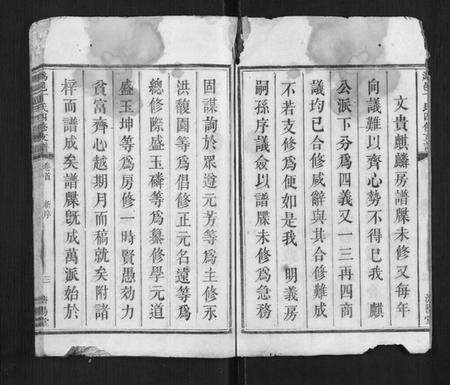 文貴麒麟房譜牒未修又每年
向議難以齊心勢不得已我 麒
公派下分爲四義又一三再四商
議均已合修咸辭與其合修難成
不若支修爲便如是我 明義房
嗣孫序議僉以譜牒未修爲急務
固謀詢於眾遵元芳等爲主修永
洪馥園等爲倡修正元名遠等爲
總修際盛玉磷等爲纂修學元道
盛玉坤等爲房修一時賢愚効力
貧富齊心越期月而稿就矣附諸
梓而譜成矣譜旣成萬派始於
氏四修族譜
卷首
新序
三